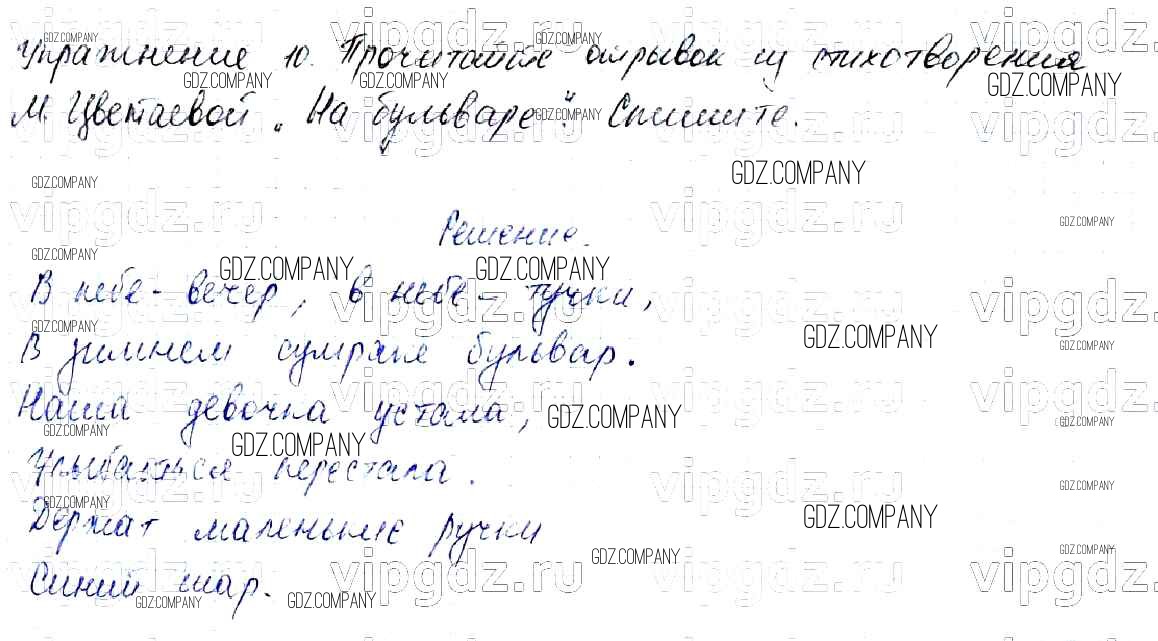 Упражнение 10. Прочитайте отрывок из стихотворения
М. Цветаевой „На бульваре". Спишите.
Решение.
В небе - вечер, в небе - тучки,
В зимнем сумраке бульвар.
Наша девочка устала,
Улыбаться перестала.
Держат маленькие ручки
Синий шар.